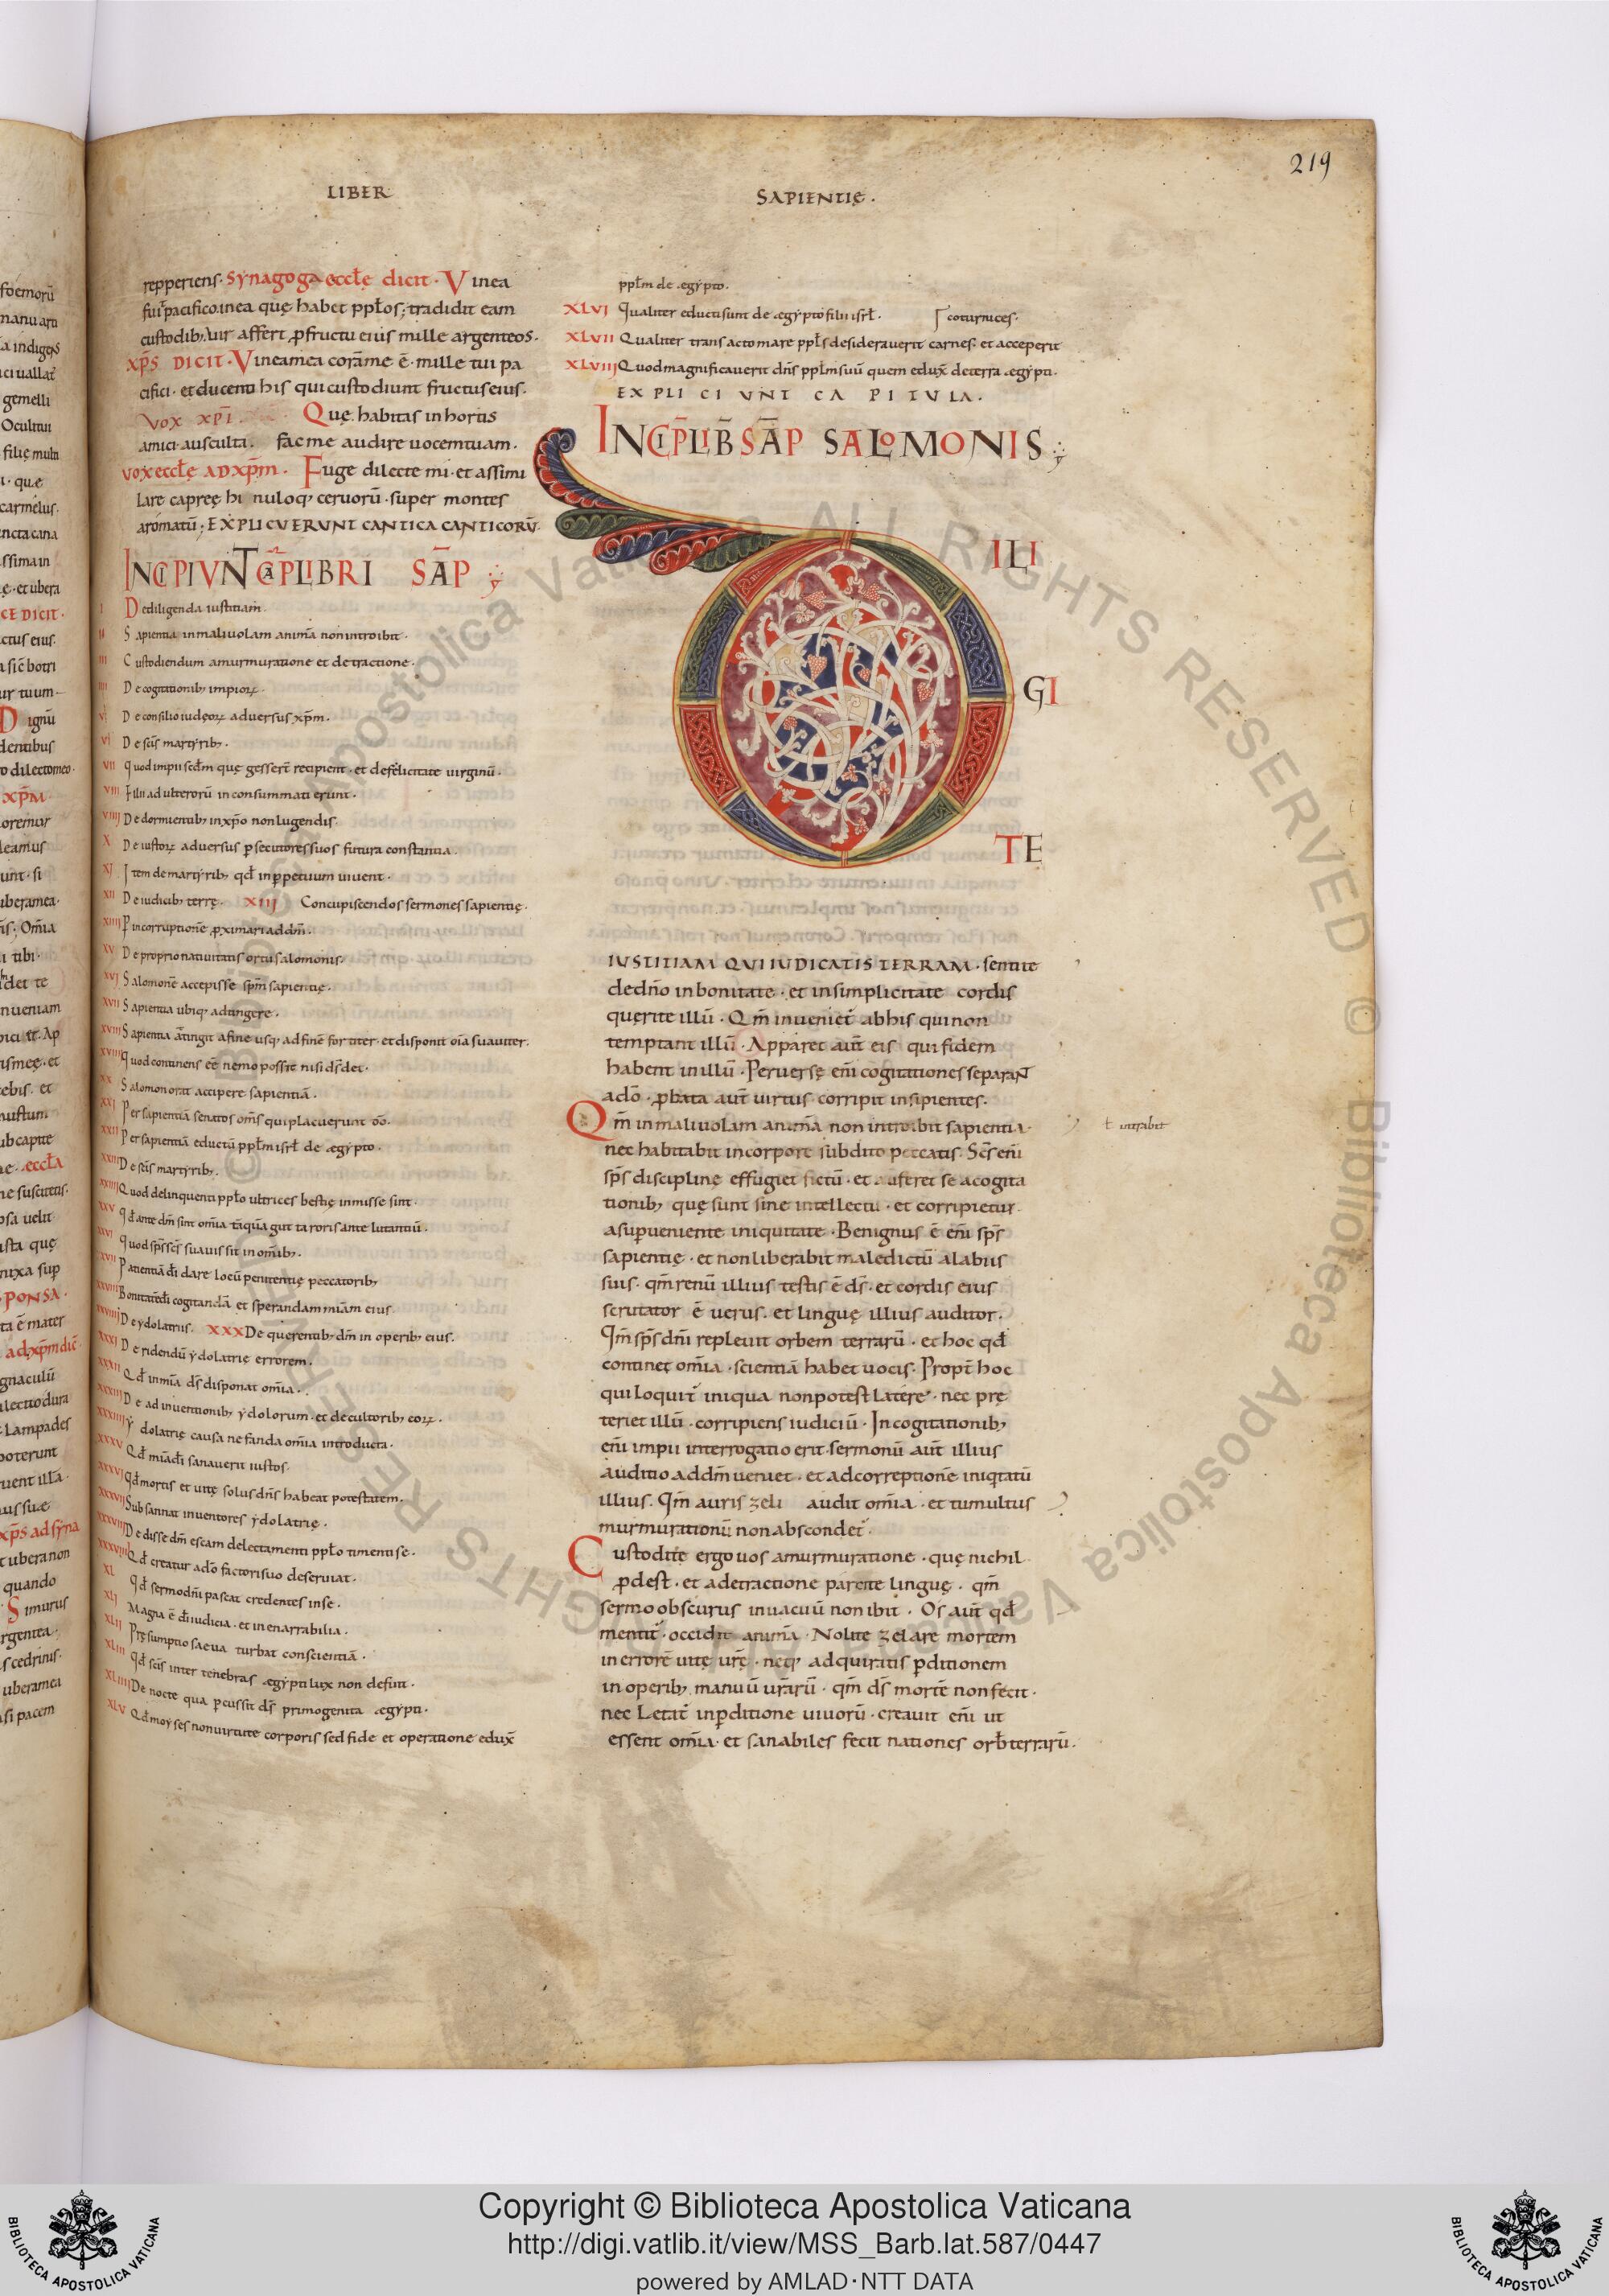 219
LIBER
SAPIENTIĘ·
repperiens· Synagoga eccłę dicit· Vinea
fuit pacifico inea quę habet ppłos; tradidit eam
custodib; uir affert pfructu eius mille argenteos·
XP̄S DICIT· Vinea mea corāme ē· mille tui pa
cifici· et ducenti his qui custodiunt fructus eius·
VOX XPĪ Quę habitas in hortis
amici ausculta· fac me audire uocem tuam·
vox eccłę ADXP̄M· Fuge dilecte mi· et assimi
lare capreę hi nuloq; ceruorū· super montes
aromatū; EXPLICUERUNT CANTICA CANTICORŪ·
INCIPIUNT CAPL LIBRI SĀP
I Dediligenda iustitiam·
II Sapientia inmaliuolam animā non introibit·
III Custodiendum amurmuratione et detractione·
IIII De cogitationib; impiorꝝ·
V De consilio iudęorꝝ adversus xp̄m·
VI De scīs martyrib;·
VII quod impii scd̄m quę gesser̄t recipient· et defelicitate uirginū·
VIII Filii adulterorū inconsummati erunt·
VIIII De dormientib; in xp̄o non lugendis·
X De iustorꝝ adversus psecutores suos futura constantia·
XI Item de martyrib; qd̄ inppetuum uiuent·
XII De iudicib; terrę· XIII Concupiscendos sermones sapientię·
XIIII P incorruptionē pximari ad dm̄·
XV De proprio nativitatis ortu salomonis·
XVI Salomonē accepisse sp̄m sapientię·
XVII Sapientia ubiq; adtingere·
XVIII Sapientia attingit afine usq; ad finē fortiter· et disponit oīa suauiter·
XVIIII quod continens eē nemo possit nisi ds̄ det·
XX Salomon orat accipere sapientiā·
XXI Per sapientiā senatos om̄s qui placuerunt dō·
XXII Per sapientiā eductū ppłm isrł de ægypto·
XXIII De scīs martyrib;·
XXIIII Quod delinquenti ppło ultrices bestię inmisse sint·
XXV qd̄ ante dm̄ sint omīa tāquā gutta roris antelucanū·
XXVI quod sp̄s scs̄ suauis sit in omīb;·
XXVII Patientiā dī dare locū penitentię peccatorib;
XXVIII Bonitatē dī cogitandā et sperandam miām eius·
XXVIIII De ydolatris· XXX De querentib; dm̄ in operib; eius·
XXXI De ridendū ydolatrię errorem·
XXXII Qd̄ in miā ds̄ disponat omīa·
XXXIII De adinuentionib; ydolorum· et de cultorib; eorꝝ·
XXXIIII ydolatrię causa nefanda omīa introducta·
XXXV Qd̄ miā dī sanauerit iustos·
XXXVI qd̄ mortis et uitę solus dn̄s habeat potestatem·
XXXVII Subsannat inuentores ydolatrię·
XXXVIII Dedisse dm̄ escam delectamenti ppło timenti se·
XXXVIIII qd̄ creatur adō factori suo deseruiat·
XL qd̄ sermo dn̄i pascat credentes in se·
XLI Magna ē dī iudicia· et inenarrabilia·
XLII Pręsumptio saeua turbat conscientiā·
XLIII qd̄ scīs inter tenebras ægypti lux non defuit·
XLIIII De nocte qua pcussit ds̄ primogenita ægypti·
XLV Qd̄ moyses non uirtute corporis sed fide et operatione edux̄
ppłm de ægypto·
XLVI qualiter educti sunt de ægypto filii isrł· coturnices·
XLVII Qualiter transacto mare ppłs desiderauerit carnes· et acceperit
XLVIII Quod magnificauerit dn̄s ppłm suū quem edux̄ de terra ægypti·
EXPLICIUNT CAPITULA·
INCIP̄ LIB̄ SĀP SALOMONIS;
DILI
GI
TE
IUSTITIAM QUI IUDICATIS TERRAM· sentite
de dn̄o in bonitate· et in simplicitate cordis
quęrite illū· Qm̄ inuenit̄ abhis qui non
temptant illū· Apparet aut̄ eis qui fidem
habent in illū· Peruersę em̄ cogitationes separant
adō· pbata aut̄ uirtus corripit insipientes·
Qm̄ in maliuolam animā non introibit sapientia·
ł intrabit
nec habitabit in corpore subdito peccatis· Scs̄ em̄
sp̄s disciplinę effugiet fictū· et auferet se acogita
tionib; quę sunt sine intellectu· et corripietur
asupueniente iniquitate· Benignus ē em̄ sp̄s
sapientię· et non liberabit maledictū alabiis
suis· qm̄ renū illius testis ē ds̄· et cordis eius
scrutator ē uerus· et linguę illius auditor·
Qm̄ sp̄s dn̄i repleuit orbem terrarū· et hoc qd̄
continet omīa· scientiā habet uocis· Propt̄ hoc
qui loquit̄ iniqua non potest latere· nec prę
teriet illū· corripiens iudiciū· In cogitationib;
em̄ impii interrogatio erit· sermonū aut̄ illius
auditio ad dm̄ ueniet· et ad correptionē iniqtatū
illius· Qm̄ auris zeli audit omīa· et tumultus
murmurationū non abscondet̄·
Custodite ergo uos amurmuratione· quę nichil
pdest· et adetractione parcite linguę· qm̄
sermo obscurus in uacuū non ibit· Os aut̄ qd̄
mentit̄· occidit animā· Nolite zelare mortem
in errorē uitę ur̄ę· neq; adquiratis pditionem
in operib; manuū urārū· qm̄ ds̄ mortē non fecit·
nec Letat̄ inpditione uiuorū· creauit em̄ ut
essent omīa· et sanabiles fecit nationes orb̄ terrarū·
Copyright © Biblioteca Apostolica Vaticana
http://digi.vatlib.it/view/MSS_Barb.lat.587/0447
powered by AMLAD·NTT DATA
BIBLIOTECA APOSTOLICA VATICANA
BIBLIOTECA APOSTOLICA VATICANA